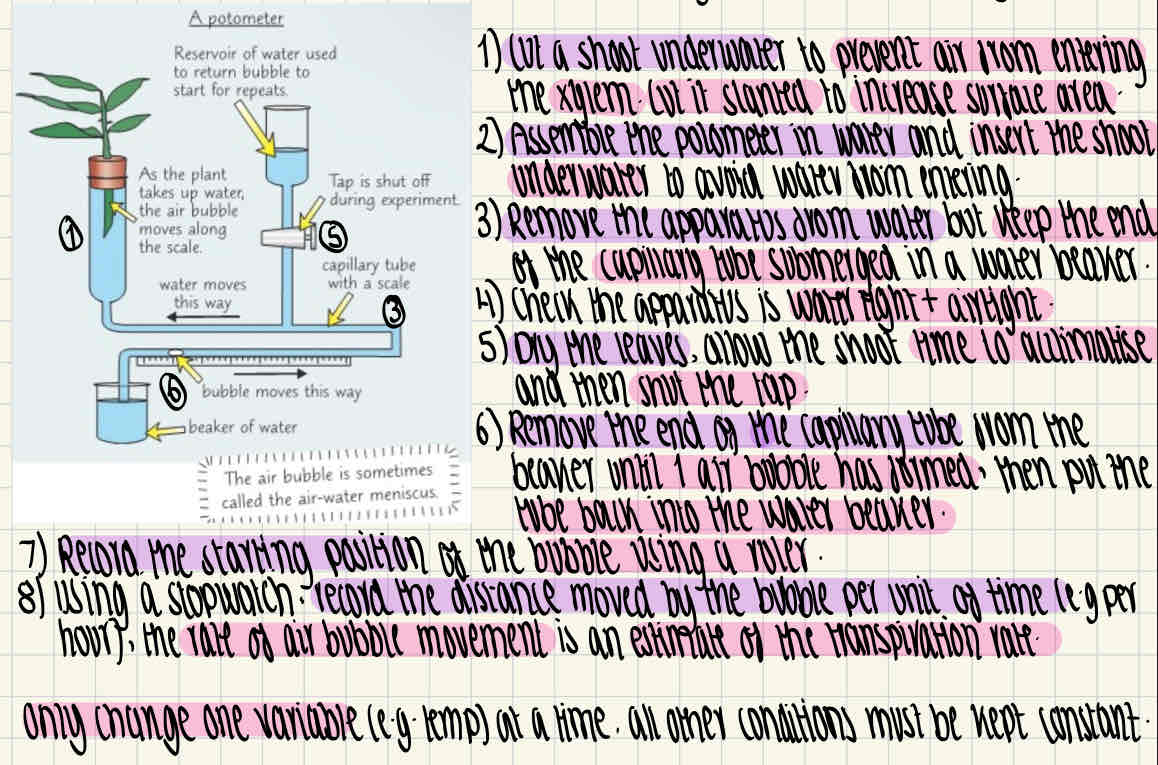 A potometer
Reservoir of water used
to return bubble to
start for repeats.
As the plant
takes up water,
the air bubble
moves along
the scale.
Tap is shut off
during experiment.
1
5
capillary tube
with a scale
water moves
this way
3
6
bubble moves this way
beaker of water
The air bubble is sometimes
called the air-water meniscus.
1) Cut a shoot underwater to prevent air from entering
the xylem. Cut it slanted to increase surface area.
2) Assemble the potometer in water and insert the shoot
underwater to avoid water from entering.
3) Remove the apparatus from water but keep the end
of the capillary tube submerged in a water beaker.
4) Check the apparatus is watertight + airtight.
5) Dry the leaves, allow the shoot time to acclimatise
and then shut the tap.
6) Remove the end of the capillary tube from the
beaker until 1 air bubble has formed, then put the
tube back into the water beaker.
7) Record the starting position of the bubble using a ruler.
8) Using a stopwatch, record the distance moved by the bubble per unit of time (e.g per
hour), the rate of air bubble movement is an estimate of the transpiration rate.
only change one variable (e.g. temp) at a time. all other conditions must be kept constant.